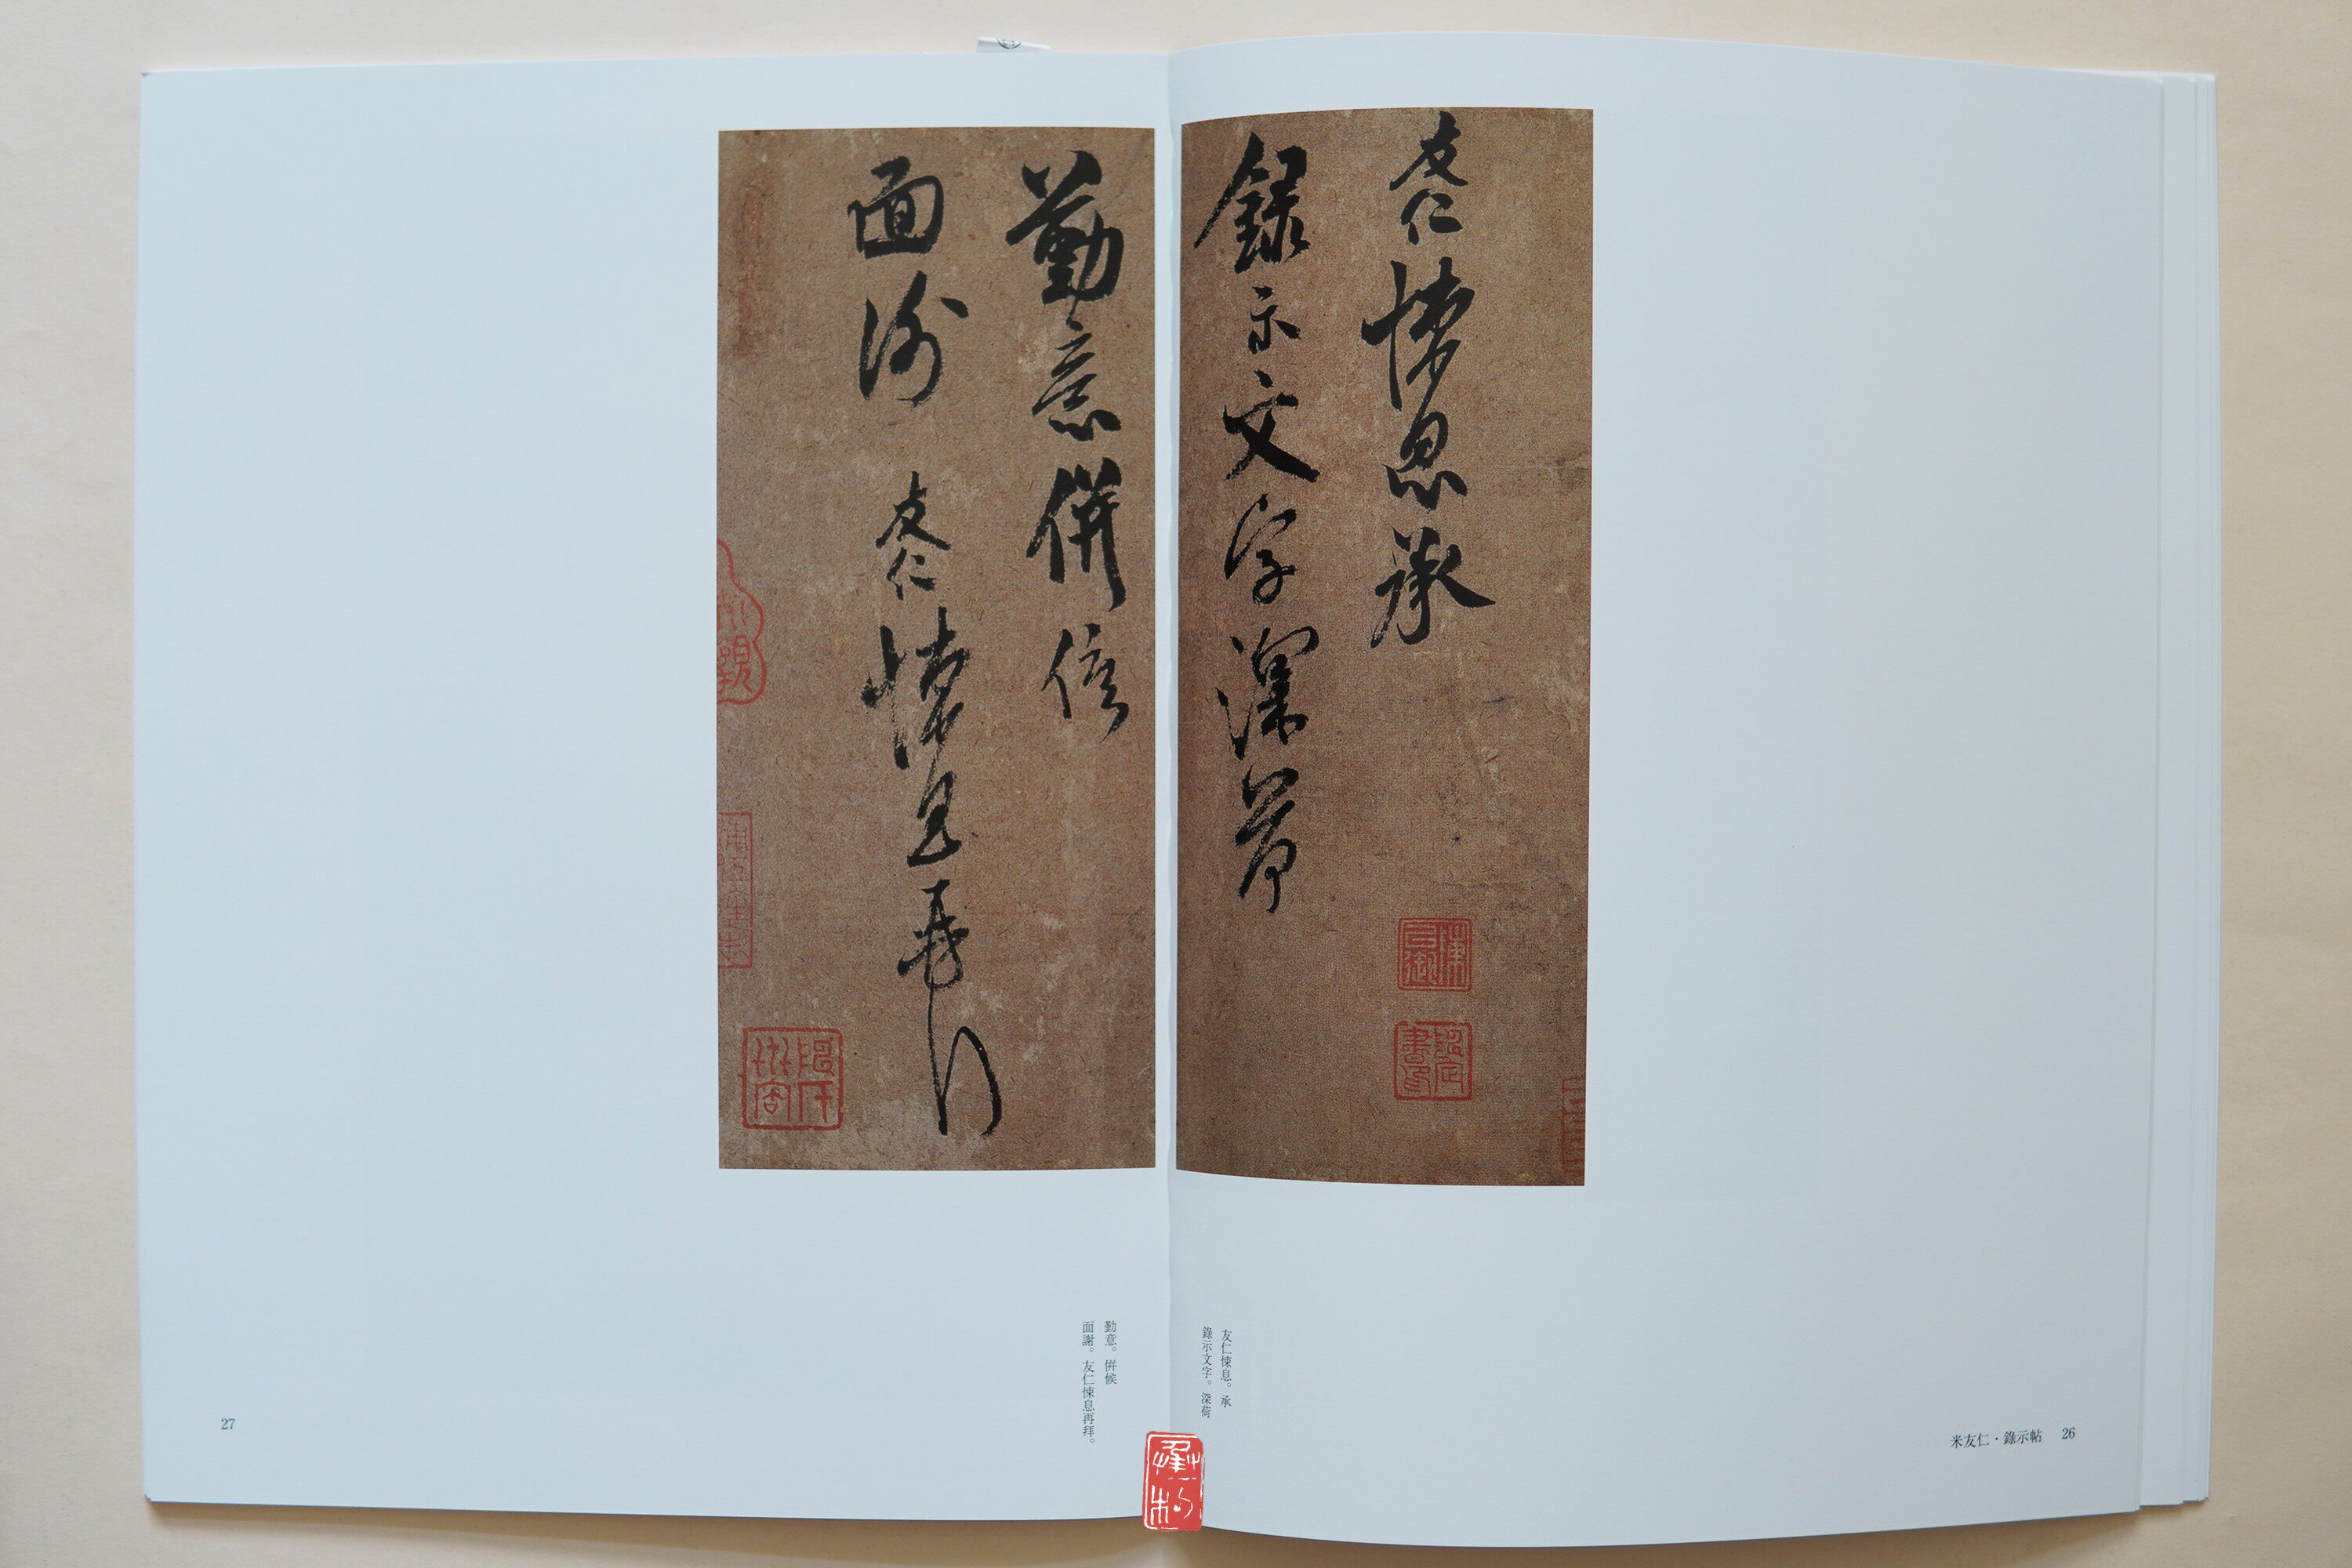 友仁悚息承
錄示文字深荷
勤意併候
面謝 友仁悚息再拜
友仁悚息。承
錄示文字。深荷
米友仁·錄示帖 26
勤意。倂候
面謝。友仁悚息再拜。
27